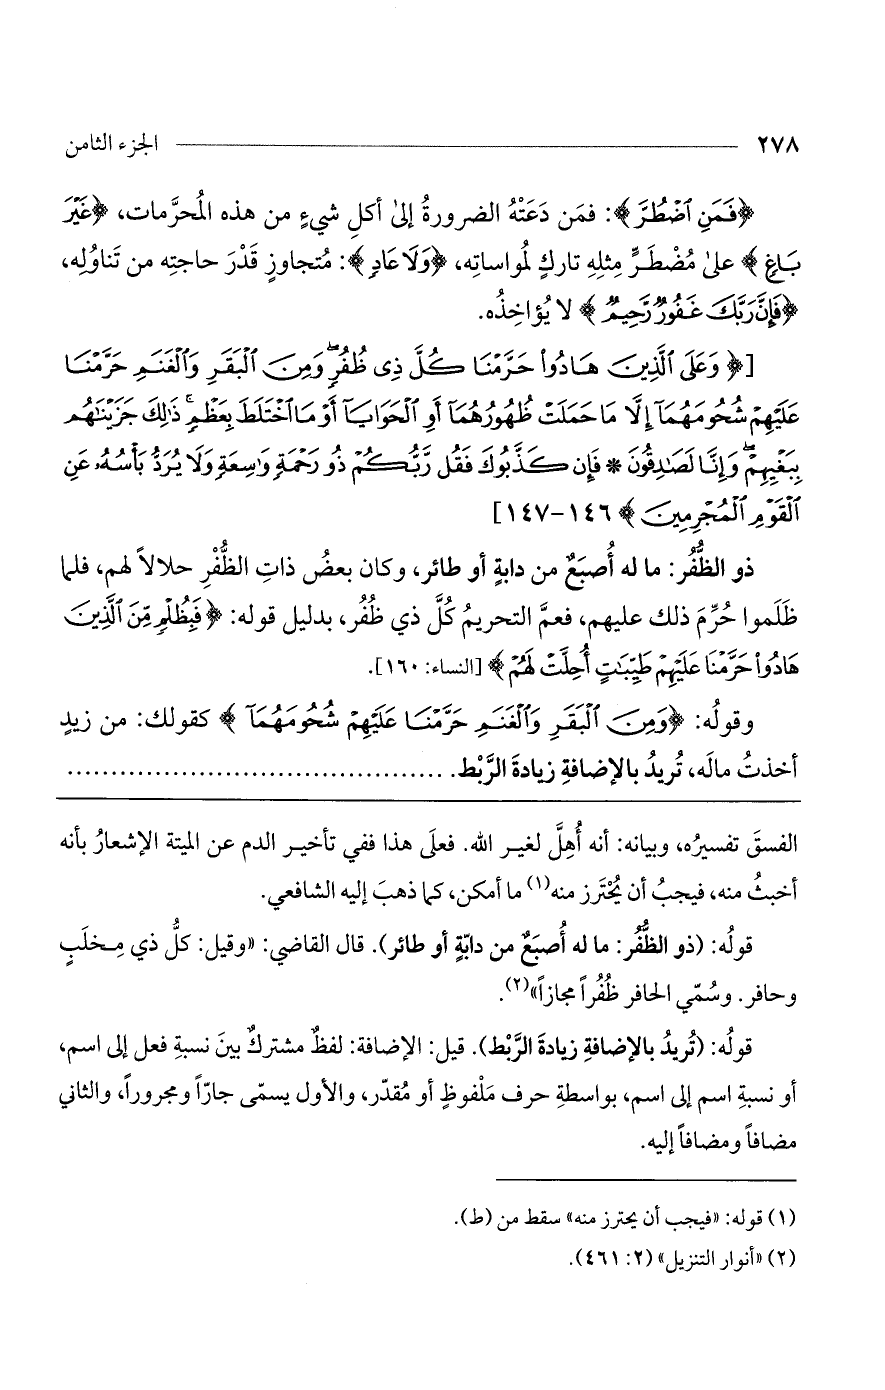 ٢٧٨ الجزء الثامن
﴿فَمَنِ ٱضْطُرَّ﴾: فمَن دَعَتْهُ الضرورةُ إلىٰ أكلِ شيءٍ من هذه المُحرَّمات، ﴿غَيْرَ
بَاغٍ﴾ علىٰ مُضْطَرٍّ مِثلِهِ تاركٍ لمُواساتِه، ﴿وَلَا عَادٍ﴾: مُتجاوزٍ قَدْرَ حاجتِه من تَناوُلِه،
﴿فَإِنَّ رَبَّكَ غَفُورٌ رَّحِيمٌ﴾ لا يُؤاخِذُه.
[﴿وَعَلَى ٱلَّذِينَ هَادُوا۟ حَرَّمْنَا كُلَّ ذِى ظُفُرٍۖ وَمِنَ ٱلْبَقَرِ وَٱلْغَنَمِ حَرَّمْنَا
عَلَيْهِمْ شُحُومَهُمَآ إِلَّا مَا حَمَلَتْ ظُهُورُهُمَآ أَوِ ٱلْحَوَايَآ أَوْ مَا ٱخْتَلَطَ بِعَظْمٍۚ ذَٰلِكَ جَزَيْنَٰهُم
بِبَغْيِهِمْۖ وَإِنَّا لَصَٰدِقُونَ * فَإِن كَذَّبُوكَ فَقُل رَّبُّكُمْ ذُو رَحْمَةٍ وَٰسِعَةٍ وَلَا يُرَدُّ بَأْسُهُۥ عَنِ
ٱلْقَوْمِ ٱلْمُجْرِمِينَ﴾ ١٤٦-١٤٧]
ذو الظُّفُر: ما له أُصبَعٌ من دابةٍ أو طائر، وكان بعضُ ذاتِ الظُّفْرِ حلالاً لهم، فلما
ظَلَموا حُرِّمَ ذلك عليهم، فعمَّ التحريمُ كُلَّ ذي ظُفُر، بدليل قوله: ﴿فَبِظُلْمٍ مِّنَ ٱلَّذِينَ
هَادُوا۟ حَرَّمْنَا عَلَيْهِمْ طَيِّبَٰتٍ أُحِلَّتْ لَهُمْ﴾ [النساء: ١٦٠].
وقولُه: ﴿وَمِنَ ٱلْبَقَرِ وَٱلْغَنَمِ حَرَّمْنَا عَلَيْهِمْ شُحُومَهُمَآ﴾ كقولك: من زيدٍ
أخذتُ مالَه، تُريدُ بالإضافةِ زيادةَ الرَّبْط. ...........................................
الفسقَ تفسيرُه، وبيانه: أنه أُهِلَّ لغير الله. فعلَى هذا ففي تأخير الدم عن الميتة الإشعارُ بأنه
أخبثُ منه، فيجبُ أن يُحْتَرز منه(١) ما أمكن، كما ذهبَ إليه الشافعي.
قولُه: (ذو الظُّفُر: ما له أُصبَعٌ من دابّةٍ أو طائر). قال القاضي: «وقيل: كلُّ ذي مِخلَبٍ
وحافر. وسُمّي الحافر ظُفُراً مجازاً»(٢).
قولُه: (تُريدُ بالإضافةِ زيادةَ الرَّبْط). قيل: الإضافة: لفظٌ مشتركٌ بينَ نسبةِ فعل إلى اسم،
أو نسبةِ اسم إلى اسم، بواسطةِ حرف مَلْفوظٍ أو مُقدّر، والأول يسمّى جارّاً ومجروراً، والثاني
مضافاً ومضافاً إليه.
(١) قوله: «فيجب أن يحترز منه» سقط من (ط).
(٢) «أنوار التنزيل» (٢: ٤٦١).